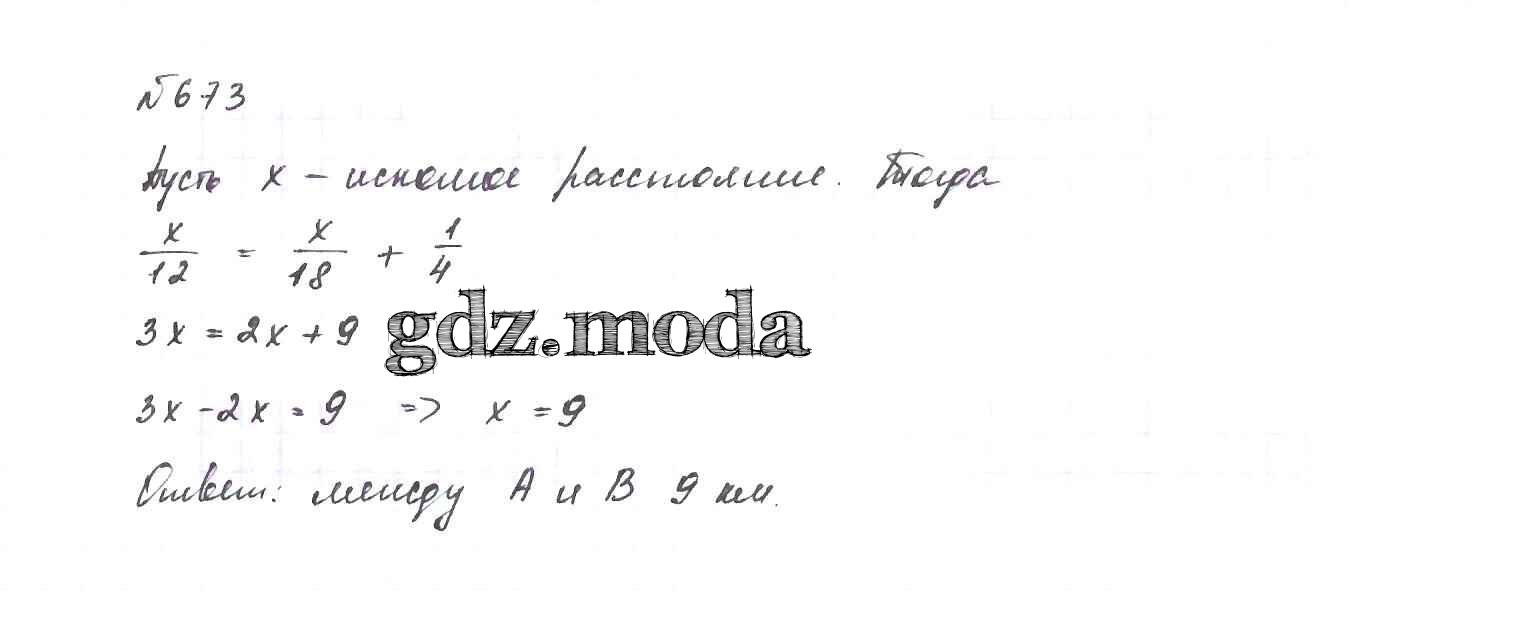 №673
Пусть x – искомое расстояние. Тогда
x/12 = x/18 + 1/4
3x = 2x + 9
gdz.moda
3x - 2x = 9 => x = 9
Ответ: между А и В 9 км.